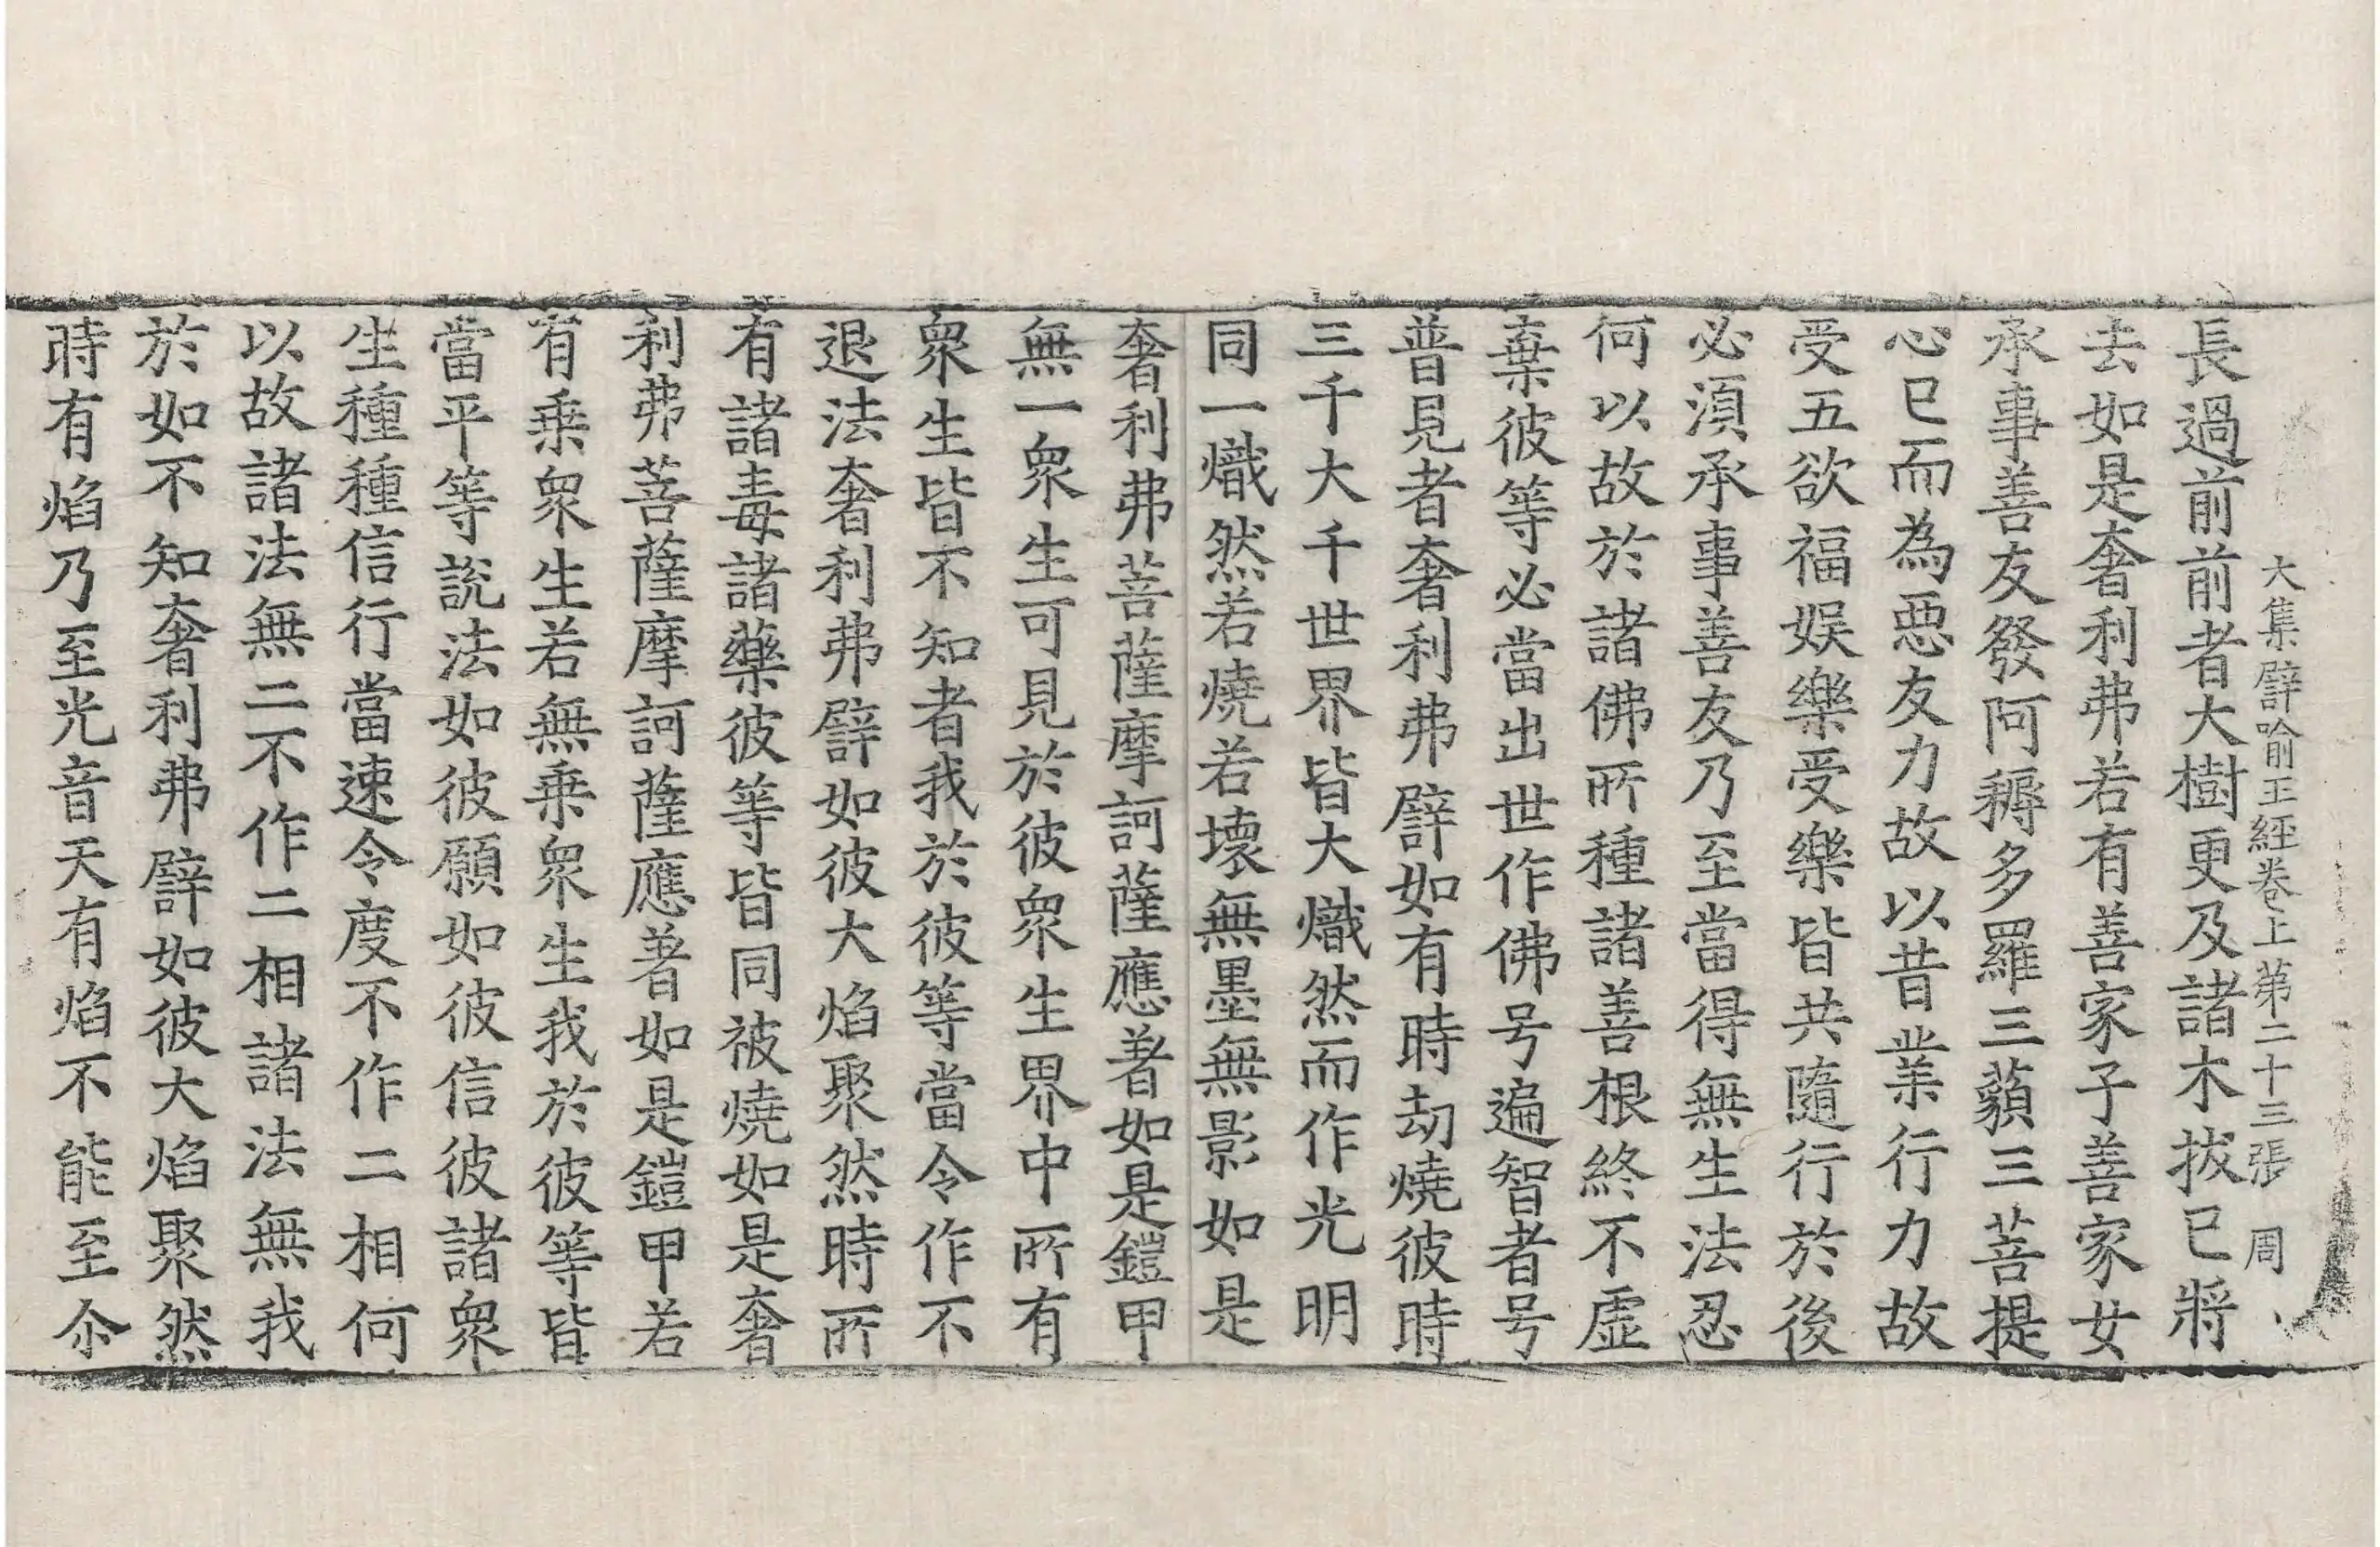 大集譬喻王經卷上第二十三張 周
長過前前者大樹更及諸木拔已將
去如是奢利弗若有善家子善家女
承事善友發阿耨多羅三藐三菩提
心已而為惡友力故以昔業行力故
受五欲福娛樂受樂皆共隨行於後
必湏承事善友乃至當得無生法忍
何以故於諸佛所種諸善根終不虛
棄彼等必當出世作佛号遍智者号
普見者奢利弗譬如有時劫燒彼時
三千大千世界皆大熾然而作光明
同一熾然若燒若壞無墨無影如是
奢利弗菩薩摩訶薩應著如是鎧甲
無一眾生可見於彼眾生界中所有
眾生皆不知者我於彼等當令作不
退法奢利弗譬如彼大焰聚然時所
有諸毒諸藥彼等皆同被燒如是奢
利弗菩薩摩訶薩應著如是鎧甲若
有乘眾生若無乘眾生我於彼等皆
當平等說法如彼願如彼信彼諸眾
生種種信行當速令度不作二相何
以故諸法無二不作二相諸法無我
於如不知奢利弗譬如彼大焰聚然
時有焰乃至光音天有焰不能至尒